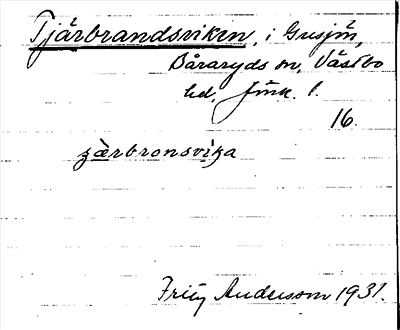 Tjärbrandsviken, i Gussjön,
Båraryds sn, Västbo
hd, Jönk. l.
16.
çærbronsvika
Fritz Andersson 1931.